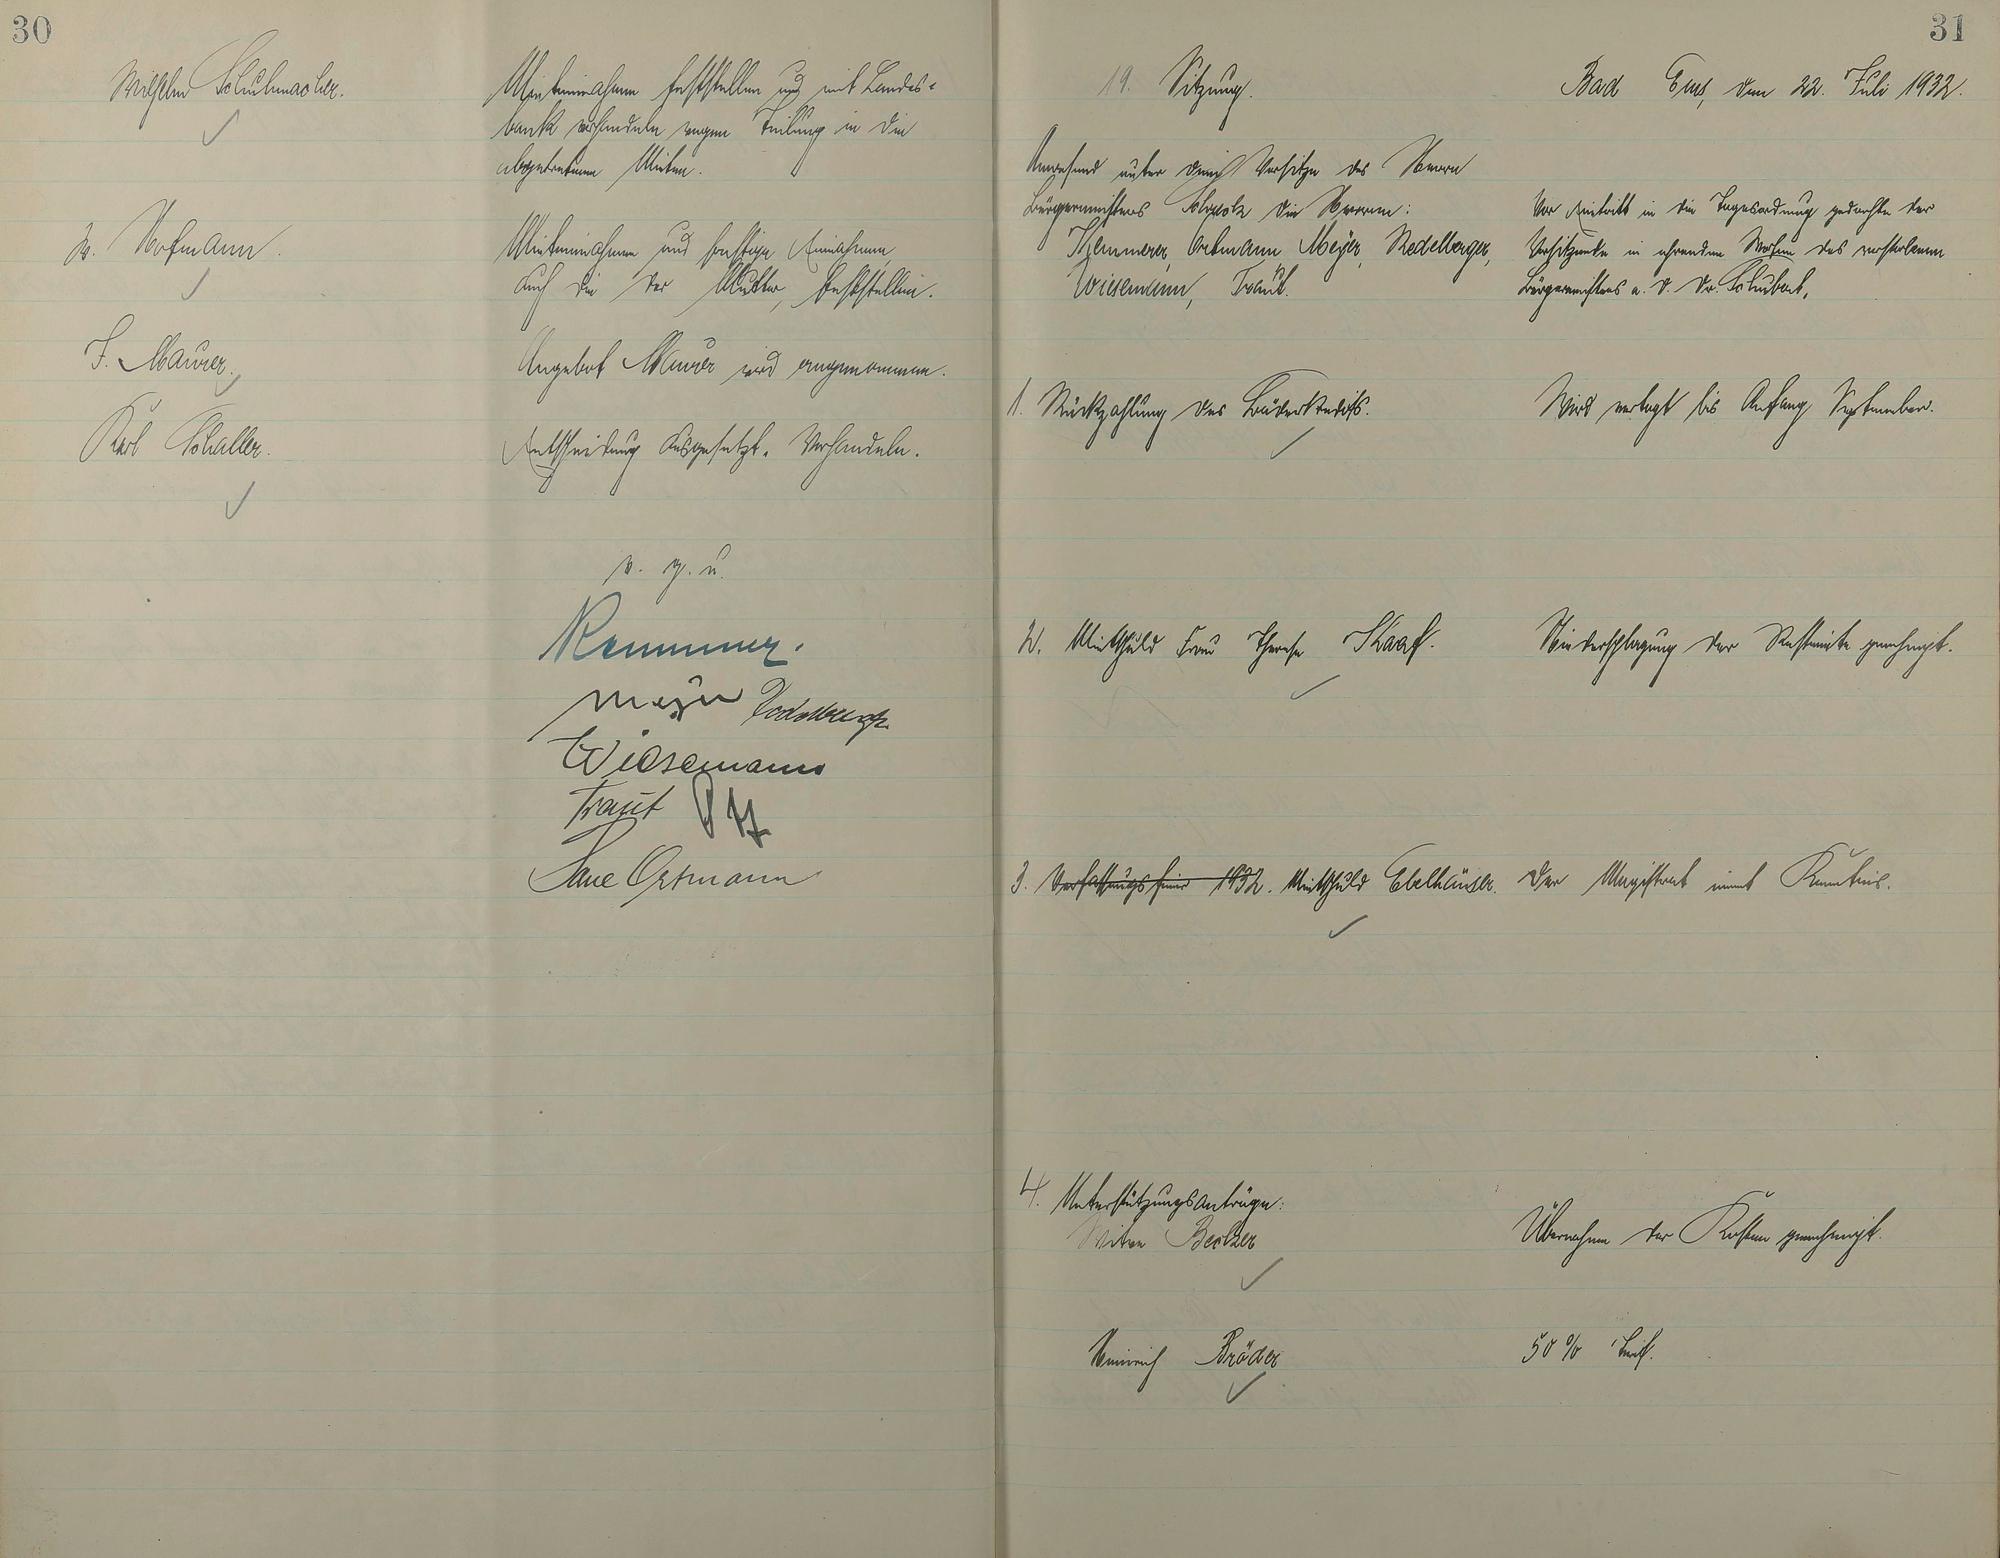 30
Wilhelm Schuhmacher.
Mieteinnahmen feststellen und mit Landes-
bank verhandeln wegen Teilung in die
abgetretenen Mieten.
W. Hofmann.
Mieteinnahmen und sonstige Einnahmen,
auch die der Mutter, feststellen.
F. Maurer.
Angebot Maurer wird angenommen.
Karl Schaller.
Entscheidung ausgesetzt. Verhandeln.
v. g. u.
Kemmerer.
Meyer Redelberger
Wiesemann
Traut
Ortmann
31
19. Sitzung.
Bad Ems, den 22. Juli 1932.
Anwesend unter dem Vorsitze des Herrn
Bürgermeisters die Herren:
Kemmerer, Ortmann, Meyer, Redelberger,
Wiesemann, Traut.
Vor Eintritt in die Tagesordnung gedachte der
Vorsitzende in ehrenden Worten des verstorbenen
Bürgermeisters a. D. Dr. Schubert.
1. Rückzahlung des Bäderkredits.
Wird vertagt bis Anfang September.
2. Mietschuld Frau Therese Kaaf.
Niederschlagung der Restmiete genehmigt.
3. Verfassungsfeier 1932. Mietschuld Ebelhäuser.
Der Magistrat nimmt Kenntnis.
4. Unterstützungsanträge:
Witwe Becker
Übernahme der Kosten genehmigt.
Heinrich Bröder
50 %